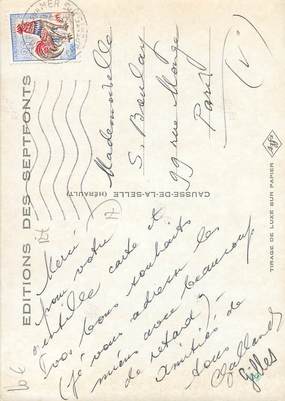 EDITIONS DES SEPTFONTS
Merci
pour votre
gentille carte et
vos bons souhaits
(je vous adresse les
miens avec beaucoup
de retard)
Amitiés de
tous
Gallands
Gilles
CAUSSE-DE-LA-SELLE (HÉRAULT)
Mademoiselle
S. Boulay
99 rue Monge
Paris
(V)
TIRAGE DE LUXE SUR PAPIER
Agfa